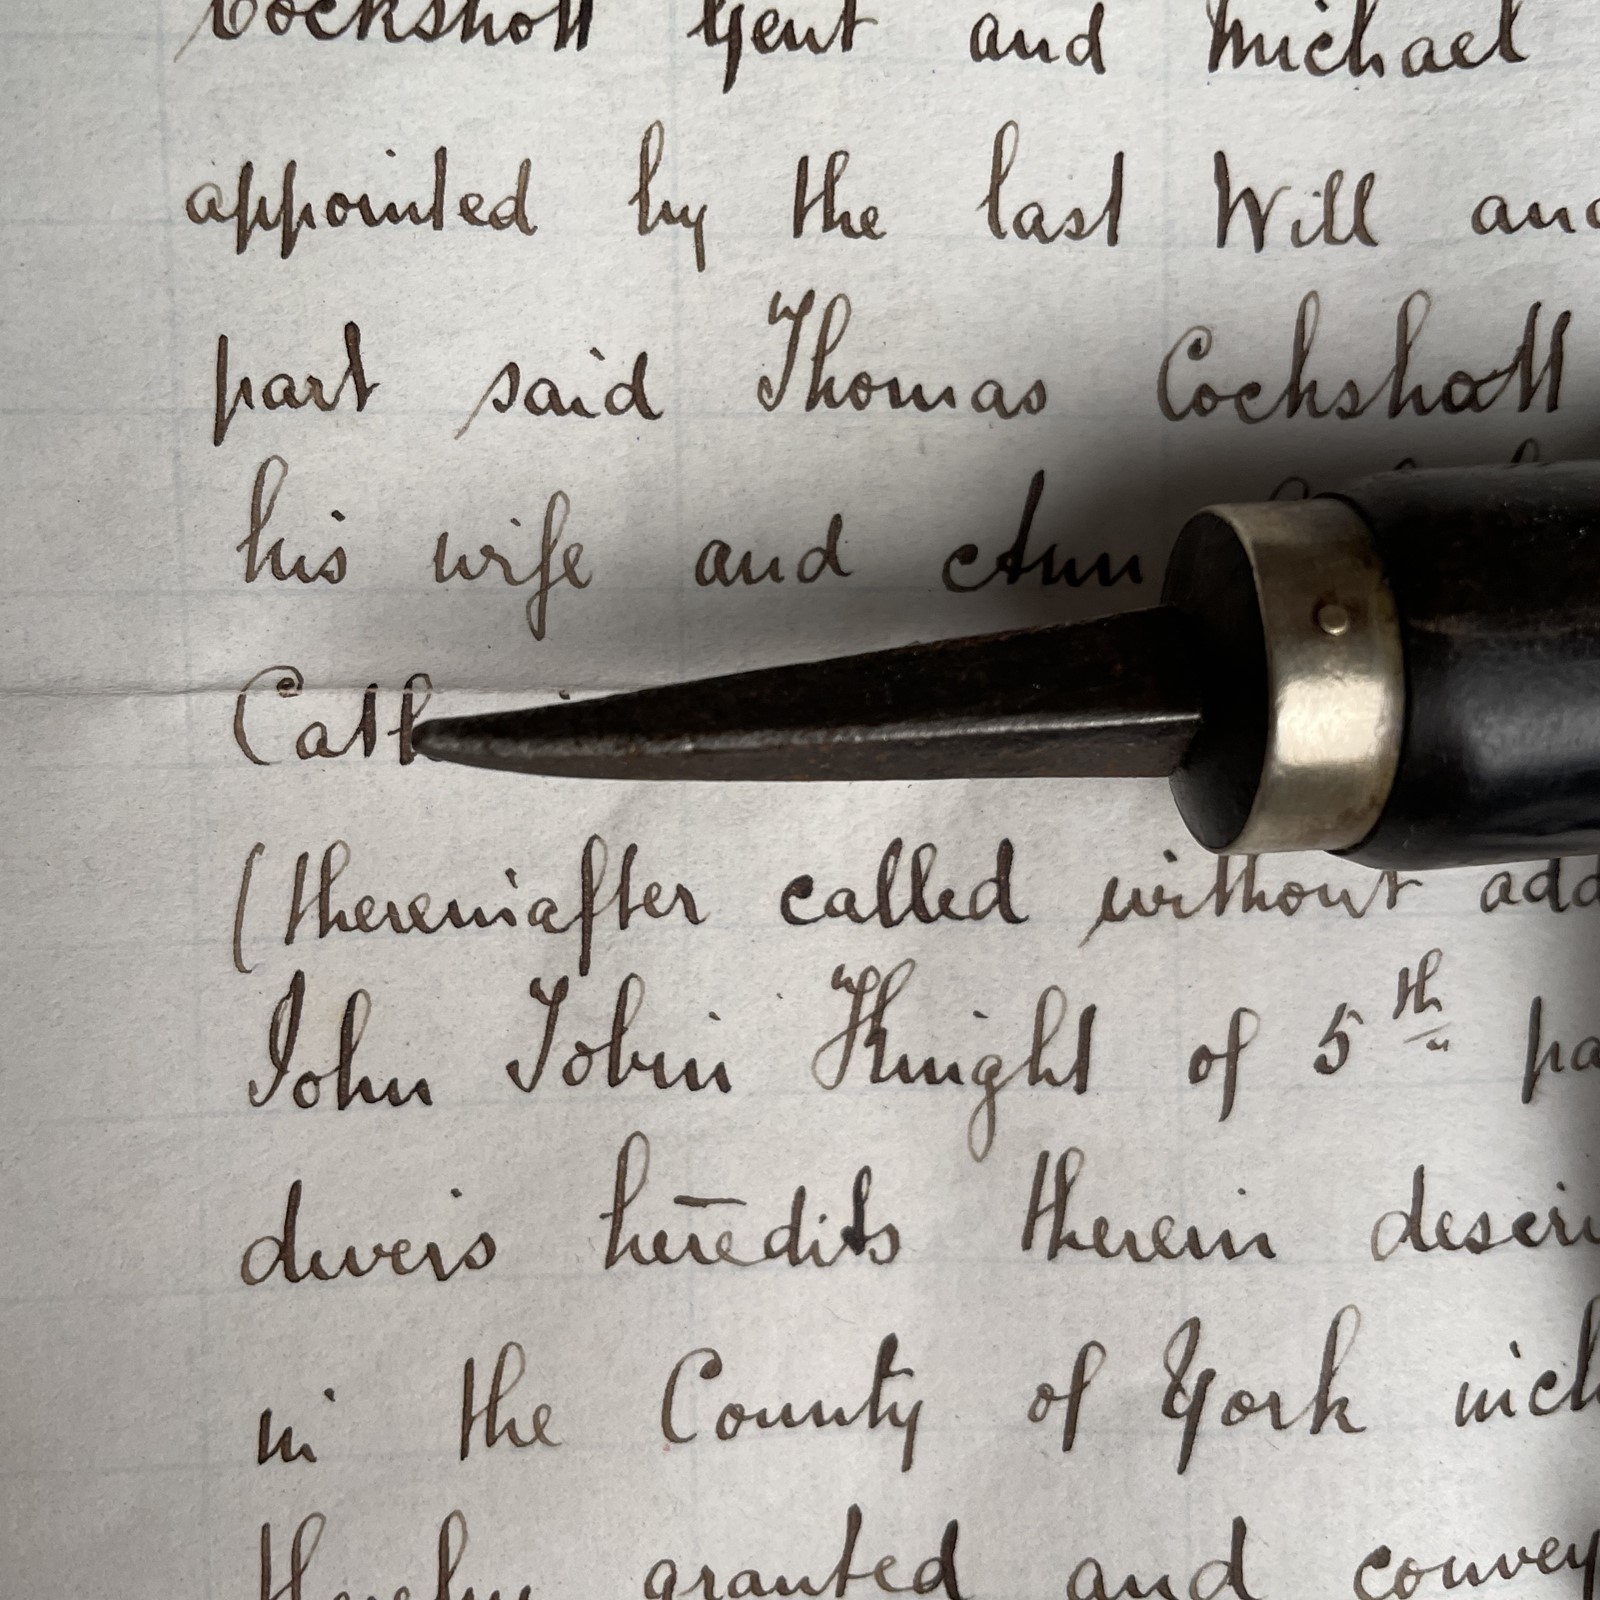 Cockshott Gent and Michael
appointed by the last Will and
part said Thomas Cockshott
his wife and Ann
(thereinafter called without
John Tobin Knight of 5th
divers heredits therein
in the County of York
thereby granted and convey